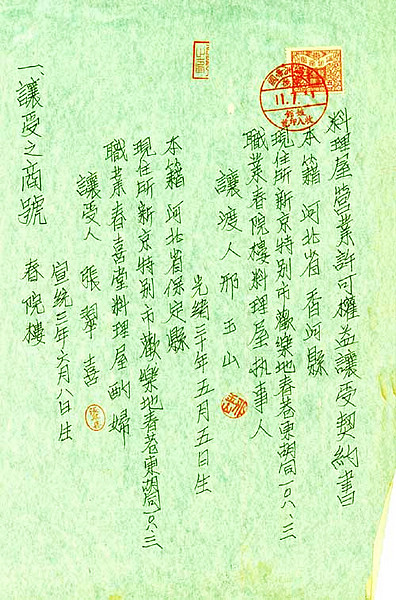 料理屋營業許可權益讓受契約書
本籍 河北省香河縣
現住所新京特別市歡樂地春巷東胡同一〇八、三
職業春院樓料理屋執事人
讓渡人 邢玉山
光緒三十年五月五日生
本籍 河北省保定縣
現住所新京特別市歡樂地春巷東胡同一〇八、三
職業春喜堂料理屋酌婦
讓受人 張翠喜
宣統三年六月八日生
一、讓受之商號 春院樓
11.7.1